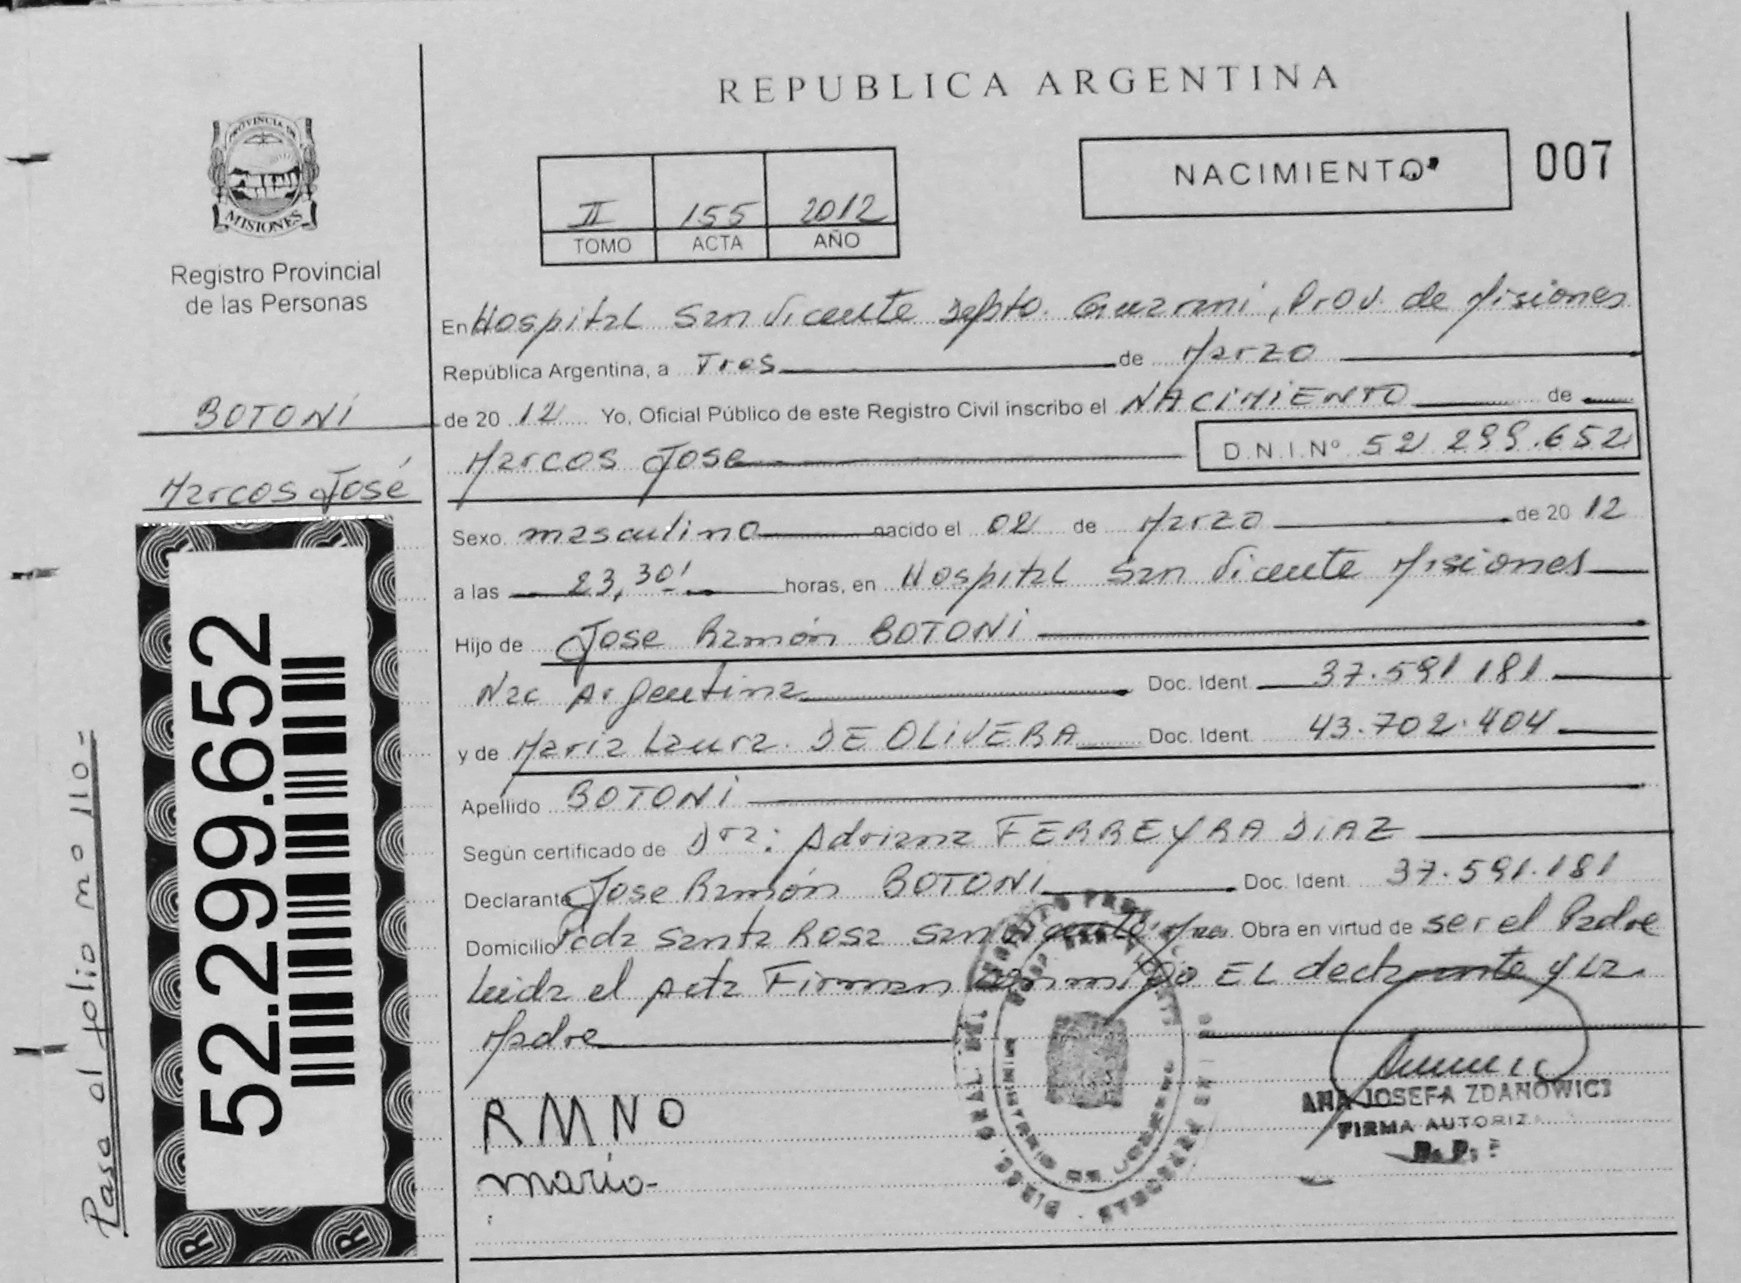 REPUBLICA ARGENTINA
PROVINCIA DE
MISIONES
Registro Provincial
de las Personas
II 155 2012
TOMO ACTA AÑO
NACIMIENTO
007
BOTONI
Marcos José
52.299.652
Pase al folio nno 110-
En Hospital San Vicente depto. Guarani, Prov. de Misiones
República Argentina, a Tres de Marzo
de 20 12 Yo, Oficial Público de este Registro Civil inscribo el NACIMIENTO de
Marcos Jose D.N.I.Nº 52 299.652
Sexo masculino nacido el 02 de Marzo de 20 12
a las 23,30' horas, en Hospital San Vicente Misiones
Hijo de Jose Ramón BOTONI
Nac Argentina Doc. Ident. 37.591 181
y de Maria Laura. DE OLIVERA Doc. Ident. 43.702.404
Apellido BOTONI
Según certificado de Dra: Adriana FERREYRA DIAZ
Declarante Jose Ramón BOTONI Doc. Ident. 37.591.181
Domicilio Pcda Santa Rosa San Vicente Obra en virtud de ser el Padre
Leida el Acta Firman conmigo EL declarante y La
Madre
RMNO
mario-
ANA JOSEFA ZDANOWICZ
FIRMA AUTORIZ